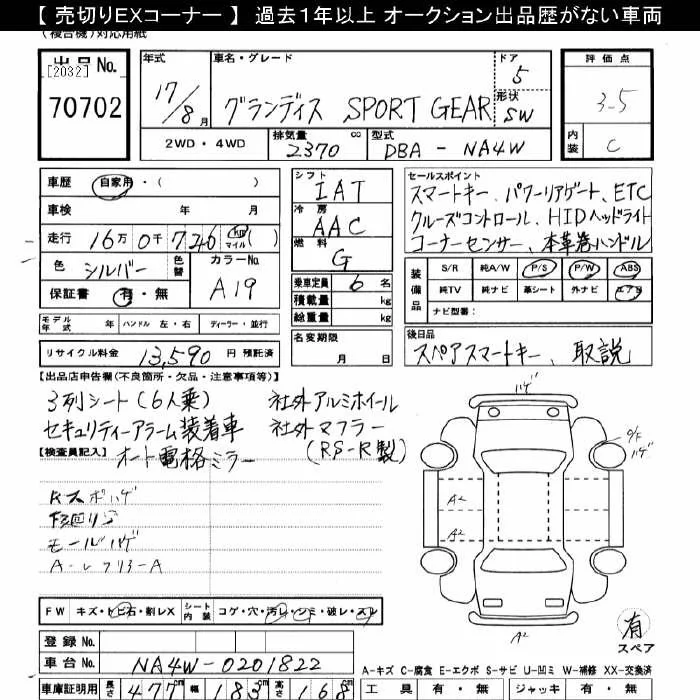 【 売切りEXコーナー 】 過去１年以上 オークション出品歴がない車両
(複合機)対応用紙
出品No. [2032] 70702
年式 17/8月
車名・グレード グランディス SPORT GEAR
ドア 5
形状 SW
評価点 3.5
内装 C
2WD・4WD
排気量 2370 cc
型式 DBA - NA4W
車歴 自家用・( )
車検 年 月
走行 16万0千726 km マイル ( )
色 シルバー 色替
カラーNo. A19
保証書 有・無
シフト IAT
冷房 AAC
燃料 G
乗車定員 6名
積載量 kg
総重量 kg
セールスポイント
スマートキー、パワーリアゲート、ETC
クルーズコントロール、HIDヘッドライト
コーナーセンサー、本革巻ハンドル
装備品 S/R 純A/W P/S P/W ABS
純TV 純ナビ 革シート 外ナビ エアB
ナビ型番( )
モデル年式 年 ハンドル 左・右 ディーラー・並行
リサイクル料金 13,590 円 預託済
名変期限 月 日
後日品
スペアスマートキー、取説
【出品店申告欄(不良箇所・欠品・注意事項等)】
3列シート(6人乗) 社外アルミホイール
セキュリティーアラーム装着車 社外マフラー
(RS-R製)
【検査員記入】 オート電格ミラー
ドスポハゲ
モールハゲ
ハゲ
ハゲ
A2
A2
A2
FW キズ・トビ石・割レX シート内装 コゲ・穴・汚レ・シミ・破レ・スレ
登録No.
車台No. NA4W-0201822
有
スペア
A-キズ C-腐食 E-エクボ S-サビ U-凹ミ W-補修 XX-交換済
車庫証明用 長さ 477cm 幅 183cm 高さ 168cm
工具 有・無 ジャッキ 有・無